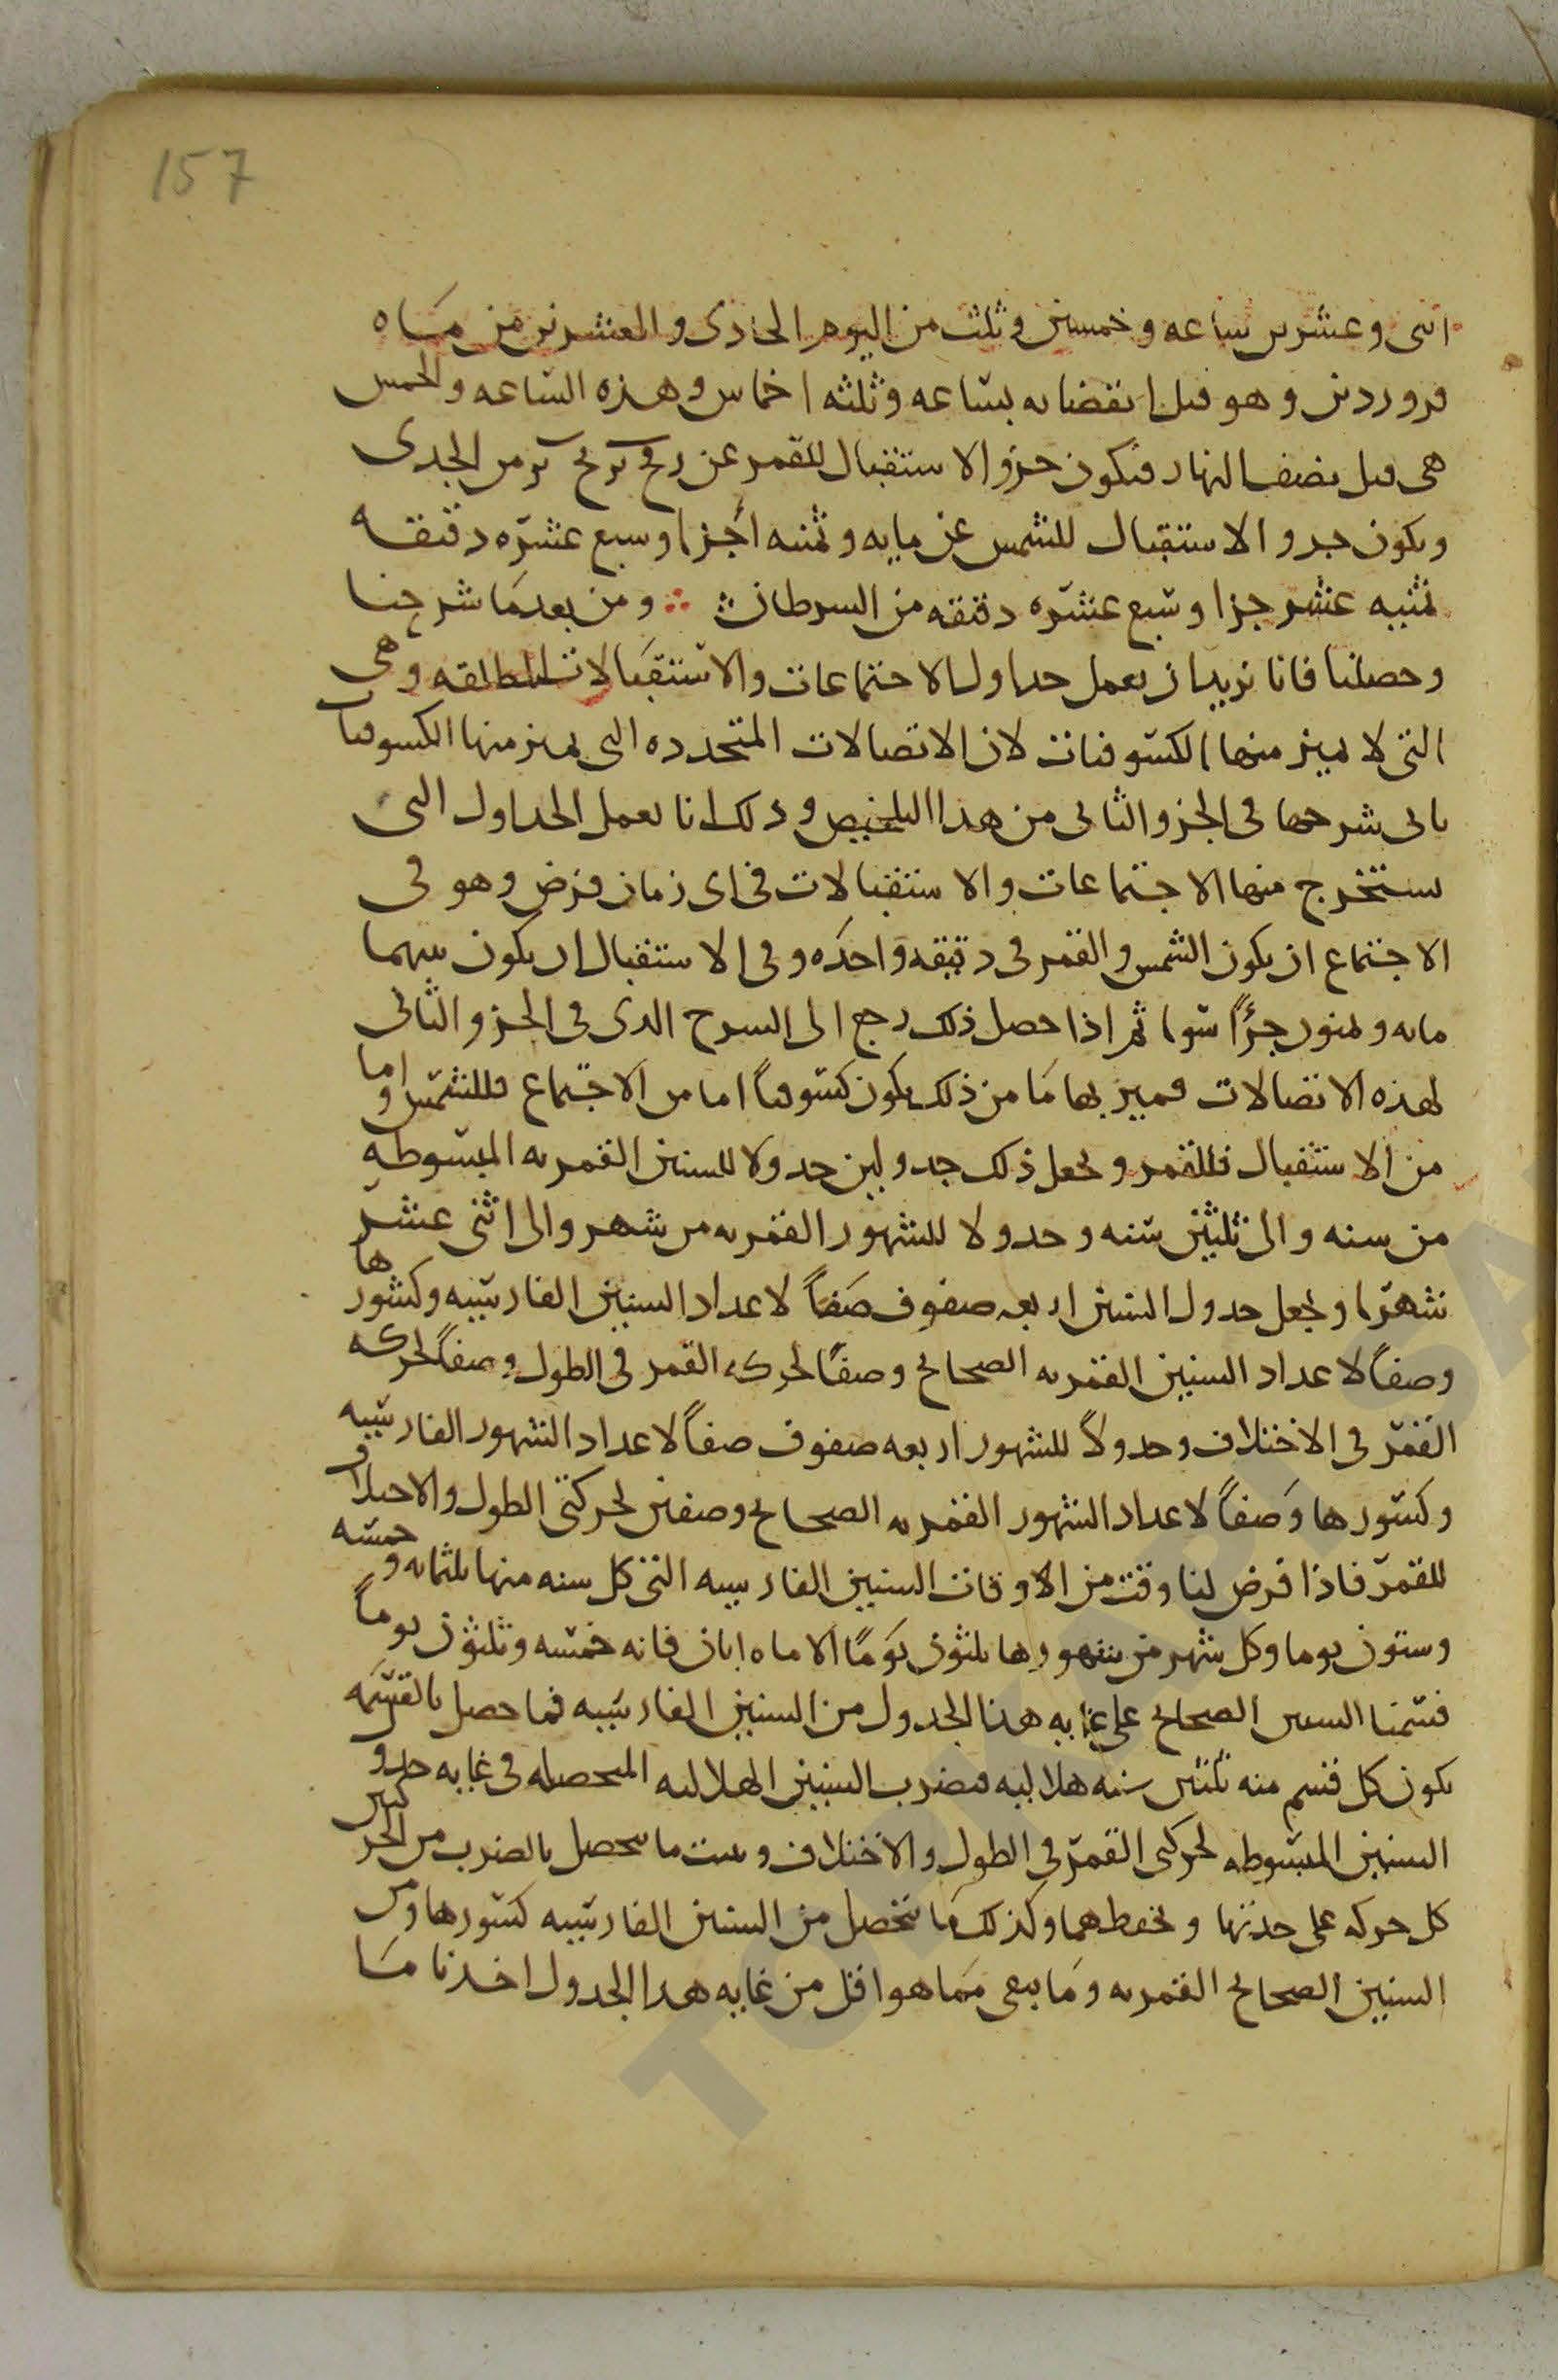 157
اثنى وعشرين ساعه وخمسين وثلث من اليوم الحادى والعشرين من ماه
فروردين وهو قبل انقضايه بساعه وثلثه اخماس وهذه الساعه والخمس
هى قبل نصف النهار فيكون جزو الاستقبال للقمر عن من الجدى
ويكون جزو الاستقبال للشمس عن مايه وثمنيه أجزا وسبع عشره دقيقه
ثمنيه عشر جزا وسبع عشره دقيقه من السرطان ومن بعد ما شرحنا
وحصلنا فانا نريد ان نعمل جداول الاجتماعات والاستقبالات المطلقه وهى
التى لا يميز منها الكسوفات لان الاتصالات المتحدده التى يميز منها الكسوفات
ياتى شرحها فى الجزو الثانى من هذا التلخيص وذلك انا نعمل الجداول التى
نستخرج منها الاجتماعات والاستقبالات فى اى زمان فرض وهو فى
الاجتماع ان يكون الشمس والقمر فى دقيقه واحده وفى الاستقبال ان يكون بينهما
مايه وثمنون جزؤاً سوا ثم اذا حصل ذلك رجع الى الشرح الذى فى الجزو الثانى
لهذه الاتصالات فميز بها ما من ذلك يكون كسوفاً اما من الاجتماع فللشمس واما
من الاستقبال فللقمر ونجعل ذلك جدولين جدولا للسنين القمريه المبسوطه
من سنه والى ثلثين سنه وجدولا للشهور القمريه من شهر والى اثنى عشر
شهرا ونجعل جدول السنين اربعه صفوف صفاً لاعداد السنين الفارسيه وكسورها
وصفاً لاعداد السنين القمريه الصحاح وصفاً لحركه القمر فى الطول وصفاً لحركه
القمر فى الاختلاف وجدولاً للشهور اربعه صفوف صفاً لاعداد الشهور الفارسيه
وكسورها وصفاً لاعداد الشهور القمريه الصحاح وصفين لحركتى الطول والاختلاف
للقمر فاذا فرض لنا وقت من الاوقات السنين الفارسيه التى كل سنه منها ثلثمايه وخمسه
وستون يوما وكل شهر من شهورها ثلثون يوماً الا ماه ابان فانه خمسه وثلثون يوماً
قسمنا السنين الصحاح على غايه هذا الجدول من السنين الفارسيه فما حصل بالقسمه
يكون كل قسم منه ثلثين سنه هلاليه فنضرب السنين الهلاليه المتحصله فى غايه جدول
السنين المبسوطه لحركتى القمر فى الطول والاختلاف ونثبت ما تحصل بالضرب من الحركتين
كل حركه على حدتها ونحفظهما وكذلك ما تحصل من السنين الفارسيه كسورها ومن
السنين الصحاح القمريه وما يبقى مما هو اقل من غايه هذا الجدول اخذنا ما